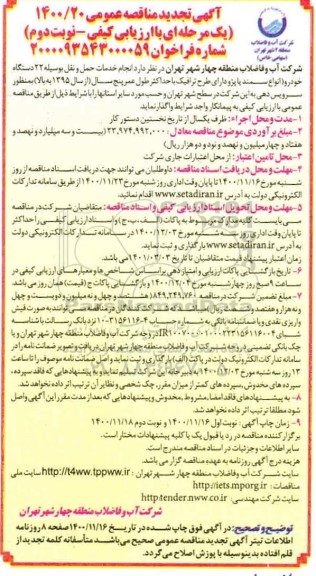 آگهی تجدید مناقصه عمومی ۱۴۰۰/۲۰
(یک مرحله ای با ارزیابی کیفی - نوبت دوم)
شماره فراخوان ۲۰۰۰۰۹۳۵۴۳۰۰۰۰۵۹
شرکت آب و فاضلاب
منطقه ۴ شهر تهران
(سهامی خاص)
شرکت آب و فاضلاب منطقه چهار شهر تهران در نظر دارد انجام خدمات حمل و نقل بوسیله ۲۲ دستگاه
خودرو (انواع سمند یا پژو دارای طرح ترافیک با حداکثر طول عمر پنج سال (از سال ۱۳۹۵ به بالا) بمنظور
سرویس دهی به این شرکت در سطح شهر تهران و حسب مورد سایر استانها را با شرایط ذیل از طریق مناقصه
عمومی با ارزیابی کیفی به پیمانکار واجد شرایط واگذار نماید.
۱- مدت و محل اجراء: ظرف یکسال از تاریخ نخستین دستور کار
۲- مبلغ برآوردی موضوع مناقصه معادل ۲۳,۹۷۴,۹۹۲,۰۰۰ (بیست و سه میلیارد و نهصد و
هفتاد و چهار میلیون و نهصد و نود و دو هزار ریال)
۳- محل تامین اعتبار: از محل اعتبارات جاری شرکت
۴- مهلت و محل دریافت اسناد مناقصه: داوطلبان می توانند جهت دریافت اسناد مناقصه از روز
شنبه مورخ ۱۴۰۰/۱۱/۱۶ تا پایان وقت اداری روز شنبه مورخ ۱۴۰۰/۱۱/۲۳ از طریق سامانه تدارکات
الکترونیکی دولت به آدرس www.setadiran.ir اقدام نمایند.
۵- مهلت و محل تحویل اسناد ارزیابی کیفی و اسناد مناقصه: متقاضیان شرکت در مناقصه
می بایست کلیه مدارک مربوط به پاکات (الف، ب، ج) و اسناد ارزیابی کیفی را حداکثر
تا پایان وقت اداری روز سه شنبه مورخ ۱۴۰۰/۱۲/۰۳ در سامانه تدارکات الکترونیکی دولت
به آدرس www.setadiran.ir بارگذاری و ثبت نمایند.
زمان اعتبار پیشنهاد قیمت متقاضیان تا تاریخ ۱۴۰۱/۰۳/۰۳ می باشد.
۶- تاریخ بازگشایی پاکات ارزیابی و امتیازدهی براساس شاخص ها و معیارهای ارزیابی کیفی در
ساعت ۹ صبح روز چهارشنبه مورخ ۱۴۰۰/۱۲/۰۴ و بازگشایی پاکات ج (قیمت) همان روز می باشد.
۷- مبلغ تضمین شرکت در مناقصه ۸۴۹,۲۴۹,۷۶۰ (هشتصد و چهل و نه میلیون و دویست و چهل
و نه هزار و هفتصد و شصت) ریال می باشد
سپرده های مخدوش، سپرده های کمتر از میزان مقرر، چک شخصی و نظایر آن ترتیب اثر داده نخواهد شد.
۸- به پیشنهادهای فاقد امضا، مشروط، مخدوش و پیشنهادهایی که بعد از مدت مقرر این آگهی واصل
شود مطلقا ترتیب اثر داده نخواهد شد.
۹- زمان چاپ آگهی: نوبت اول ۱۴۰۰/۱۱/۱۶ و نوبت دوم ۱۴۰۰/۱۱/۱۸
برگزار کننده مناقصه در رد یا قبول یک یا کلیه پیشنهادات مختار است.
سایر اطلاعات و جزئیات در اسناد مناقصه مندرج است.
هزینه درج آگهی روزنامه به عهده مناقصه گزار می باشد.
سایت شرکت آب و فاضلاب منطقه چهار شهر تهران: http://t4ww.tppww.ir سایت ملی
مناقصات: http://iets.mporg.ir
سایت شرکت مهندسی: http:tender.nww.co.ir
شرکت آب و فاضلاب منطقه چهار شهر تهران
توضیح و تصحیح: در آگهی فوق چاپ شده در تاریخ ۱۴۰۰/۱۱/۱۶ صفحه ۸ روزنامه
اطلاعات تیتر آگهی تجدید مناقصه عمومی صحیح می باشد متأسفانه کلمه تجدید از
قلم افتاده بدینوسیله با پوزش اصلاح می گردد.